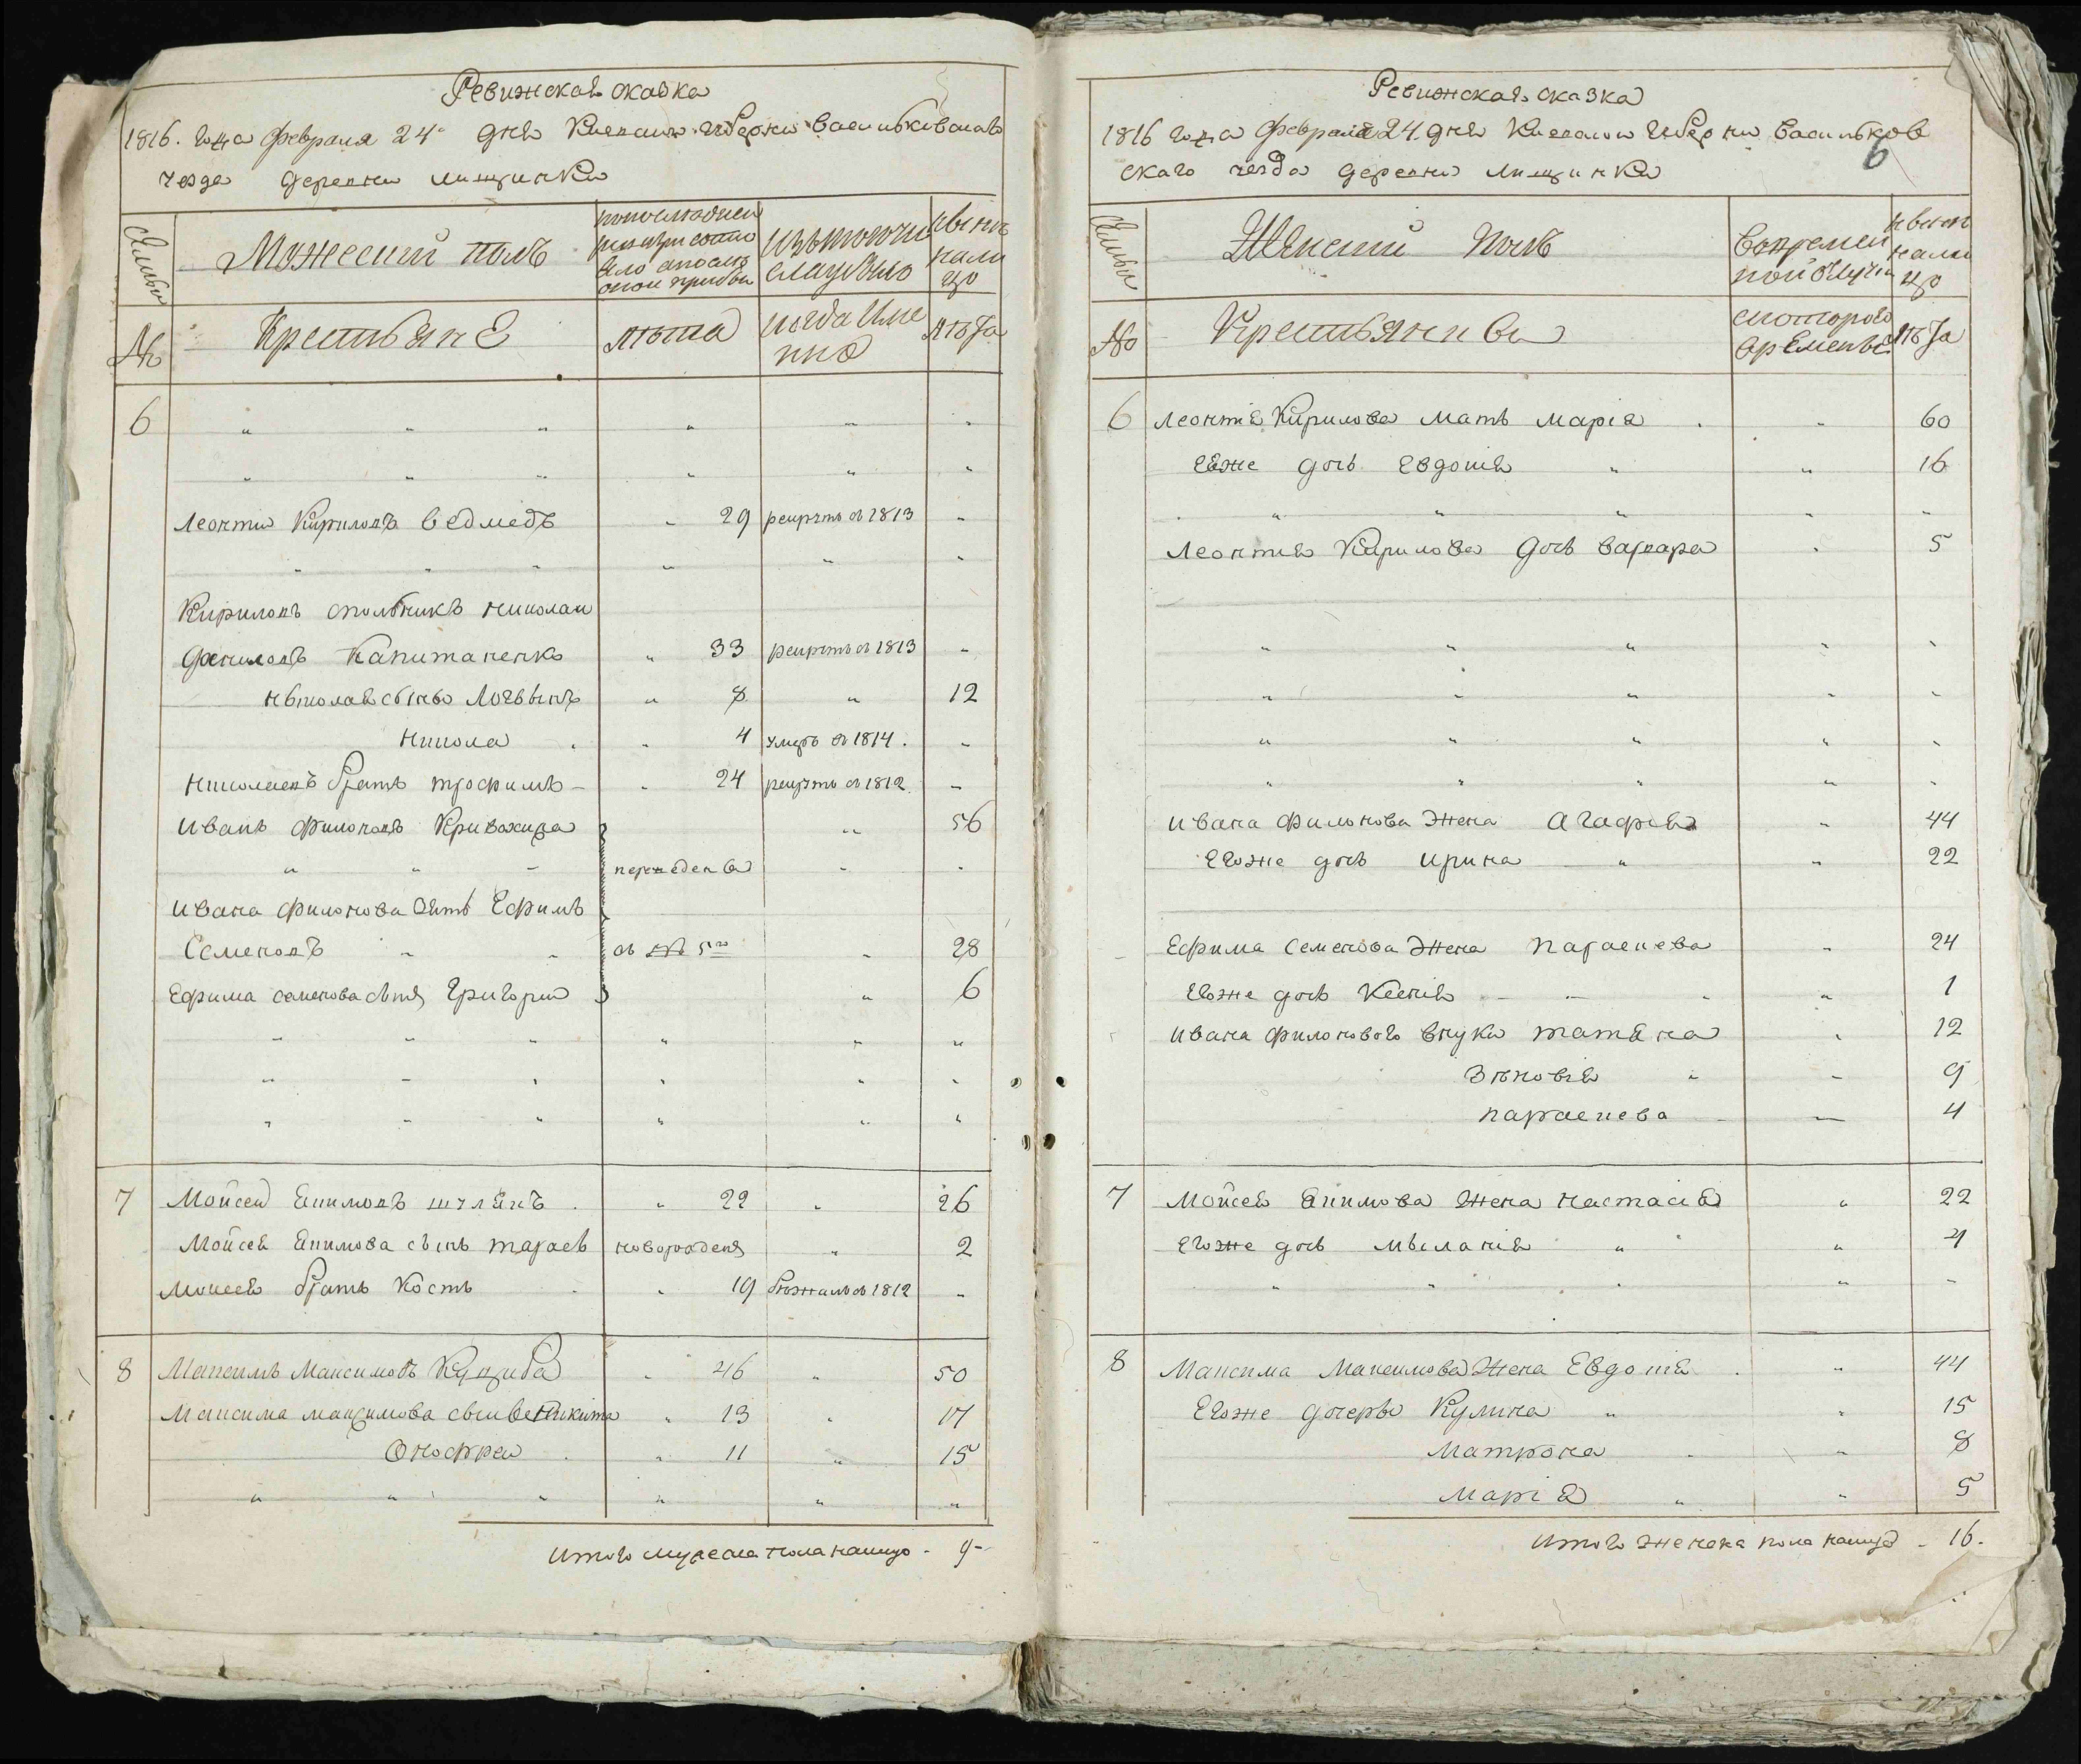 Ревижская сказка
1816. года февраля 24 дня Киевской губернии васильковскаго
уезда деревни лищинки
Семьи
Мужеский полъ
по последней ревизии состояло и после оной прибыло
изъ того числа убыло
ныне налицо
№
Крестьяне
лета
когда именно
лета
6
Леонтий Кириловъ ведмедь 29 рекрутъ въ 1813
Кириловъ Николай
Даниловъ Капитаненко 33 рекрутъ въ 1813
Николая сыны Логвынъ 8 12
Никола 4 умеръ въ 1814.
Николаевъ братъ трофимъ 24 рекрутъ въ 1812
иванъ филоновъ Кривохижа 56
переведены
ивана филонова зять Ефимъ
Семеновъ въ № 5 28
Ефима семенова Григорий 6
7 Мойсей Екимовъ шулякъ 22 26
Мойсея Екимова сынъ тарасъ новорожденъ 2
Моисея братъ Кость 19 бежалъ въ 1812
8 Максимъ Максимовъ Куциба 46 50
Максима максимова сыны Никита 13 17
Онофрей 11 15
итого мужеска пола налицо - 9-
Ревижская сказка
6
1816 года февраля 24 дня Киевской губернии васильков
скаго уезда деревни лищинки
Семьи
Женский полъ
во временной отлучке
ныне налицо
№
Крестьянки
с котораго времени
лета
6 Леонтия Кирилова мать марія 60
Еяже дочь Евдокия 16
Леонтия Кирилова дочь варвара 5
ивана филонова жена агафия 44
Егоже дочь ирина 22
Ефима семенова жена параскева 24
Егоже дочь Ксения 1
ивана филоновога внуки татяна 12
Зѣновія 9
параскева 4
7 Мойсея Екимова жена настасия 22
Егоже дочь мыланія 4
8 Максима Максимова жена Евдокия 44
Егоже дочеры Кулина 15
матрона 8
марія 5
итого женска пола налицо - 16.